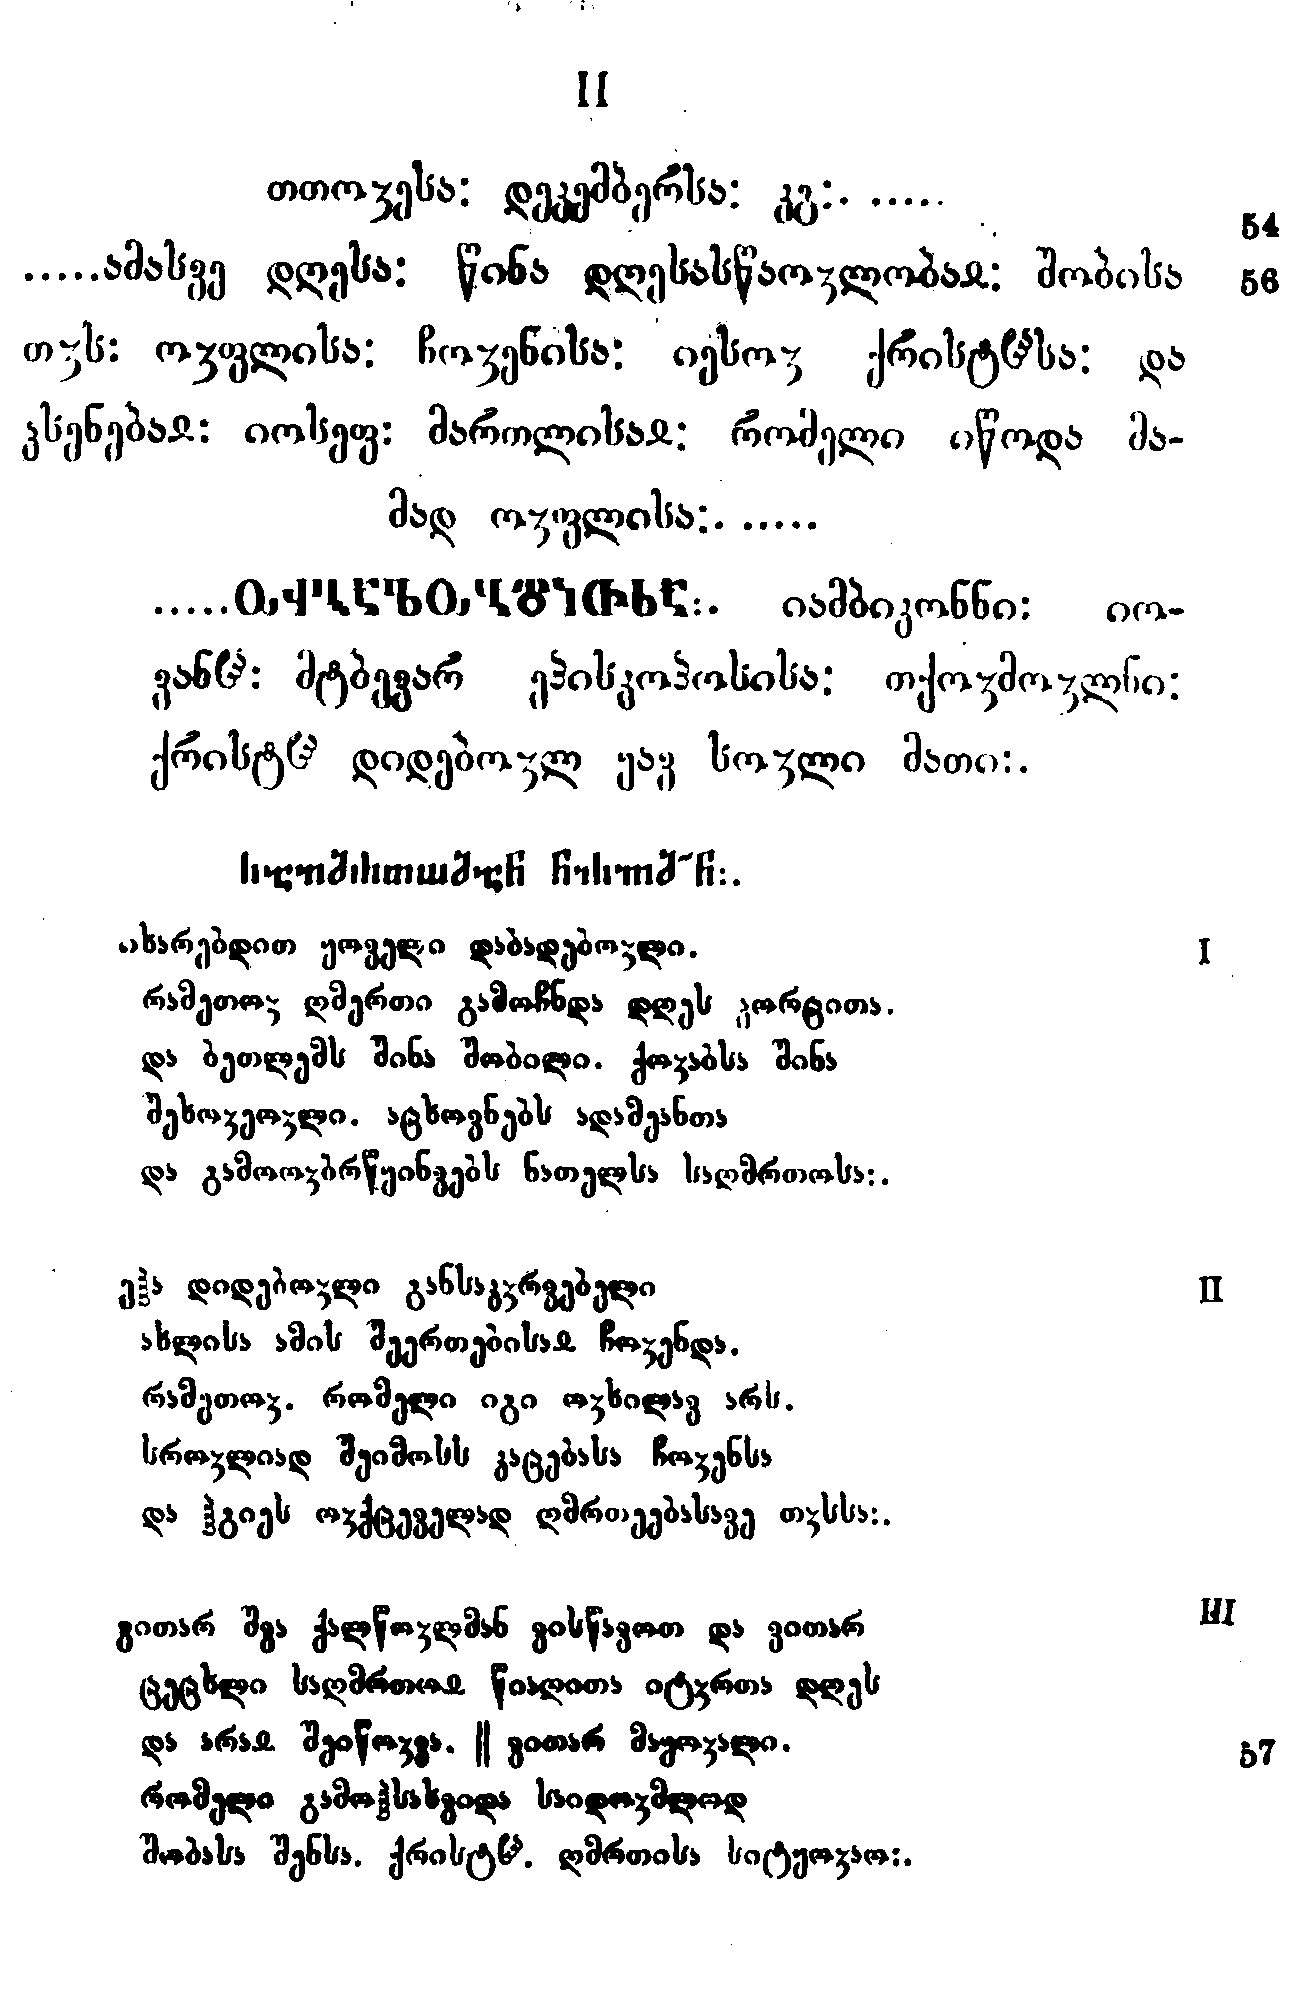 II
თთოჳესა: დეკემბერსა: კგ:. .....
54
.....ამასვე დღესა: წინა დღესასწაოჳლობაჲ: შობისა 56
თჳს: ოჳფლისა: ჩოჳენისა: იესოჳ ქრისტჱსა: და
კსენებაჲ: იოსეფ: მართლისაჲ: რომელი იწოდა მა-
მად ოჳფლისა:. .....
..... იამბიკონნი: იო-
ვანჱ: მტბევარ ეპისკოპოსისა: თქოჳმოჳლნი:
ქრისტჱ დიდებოჳლ ყავ სოჳლი მათი:.
იხარებდით ყოველი დაბადებოჳლი. I
რამეთოჳ ღმერთი გამოჩნდა დღეს კორცითა.
და ბეთლემს შინა შობილი. ქოჳაბსა შინა
შეხოჳეოჳლი. აცხოვნებს ადამეანთა
და გამოოჳბრწყინვებს ნათელსა საღმრთოსა:.
ეჰა დიდებოჳლი განსაკჳრვებელი II
ახლისა ამის შეერთებისაჲ ჩოჳენდა.
რამეთოჳ. რომელი იგი ოჳხილავ არს.
სროჳლიად შეიმოსს კაცებასა ჩოჳენსა
და ჰგიეს ოჳქცეველად ღმრთეებასავე თჳსსა:.
ვითარ შვა ქალწოჳლმან ვისწავოთ და ვითარ III
ცეცხლი საღმრთოჲ წიაღითა იტჳრთა დღეს
და არაჲ შეიწოჳვა. || ვითარ მაყოჳალი. 57
რომელი გამოჰსახვიდა საიდოჳმლოდ
შობასა შენსა. ქრისტჱ. ღმრთისა სიტყოჳაო:.